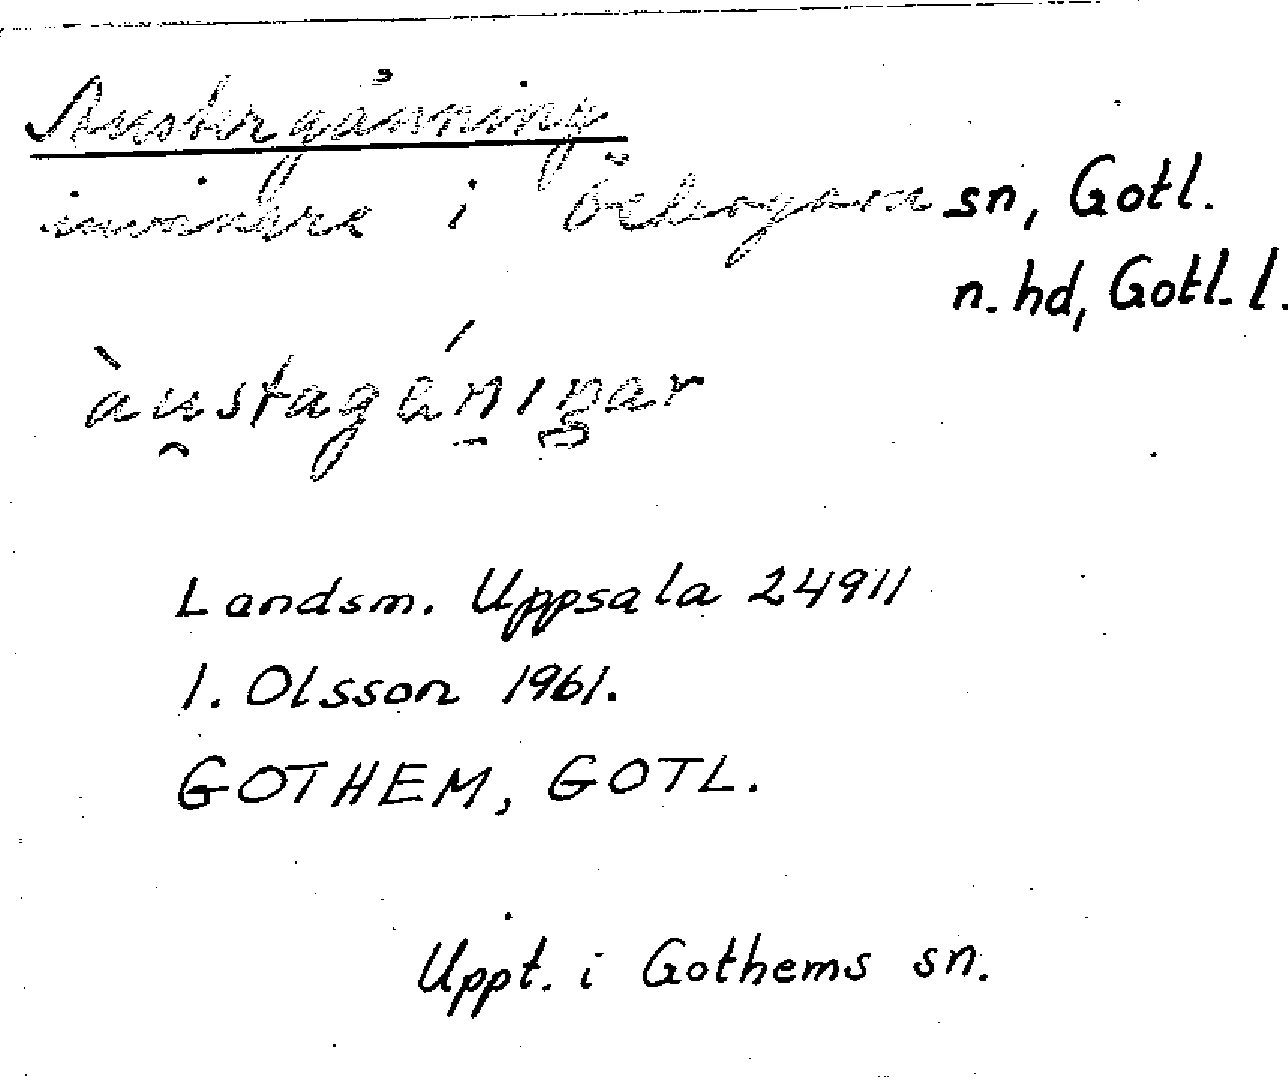 Austergånning
invånare i Östergarn sn, Gotl.
n. hd, Gotl. l.
àustagáningar
Landsm. Uppsala 24911
I. Olsson 1961.
GOTHEM, GOTL.
Uppt. i Gothems sn.